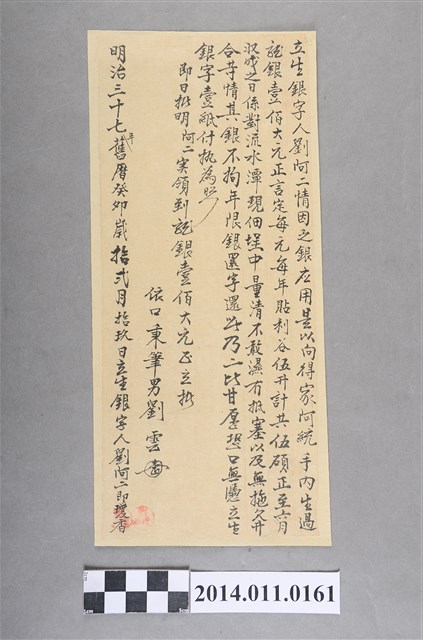 立生銀字人劉阿二情因乏銀应用是以向得家阿統手內生過
銀壹佰大元正言定每元每年貼利谷伍升計共伍碩正至六月
收成之日係對流水潭現佃埕中量清不敢濕有抵塞以及無拖欠升
合等情其銀不拘年限銀還字還此乃二比甘愿恐口無憑立生
銀字壹紙付执為照
即日批明阿二实領到銀壹佰大元正立批
依口秉筆男劉雲
明治三十七年舊曆癸卯歲拾弍月拾玖日立生銀字人劉阿二即瓊香
2014.011.0161